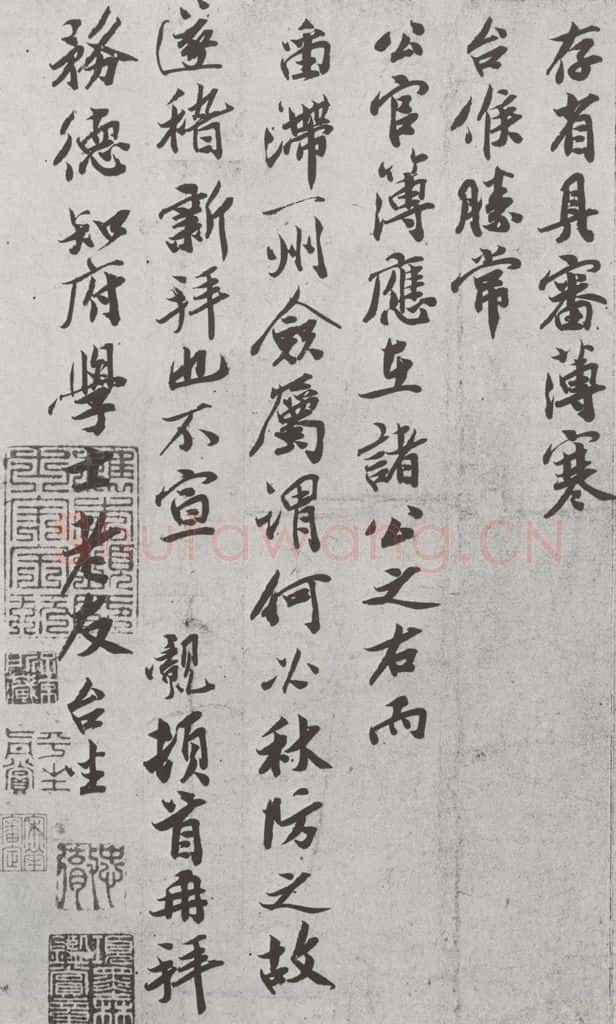 存省具審薄寒
台候勝常
公官簿應在諸公之右而
留滯一州僉屬謂何必秋防之故
遂稽新拜也不宣 覿頓首再拜
務德知府學士老友台坐
Shufawang.CN
平生
真賞